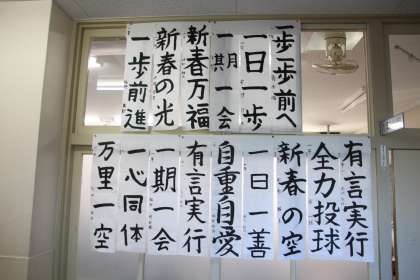 一歩一歩前へ
一日一歩
一期一会
新春万福
新春の光
一歩前進
有言実行
全力投球
新春の空
一日一善
自重自愛
有言実行
一期一会
一心同体
万里一空